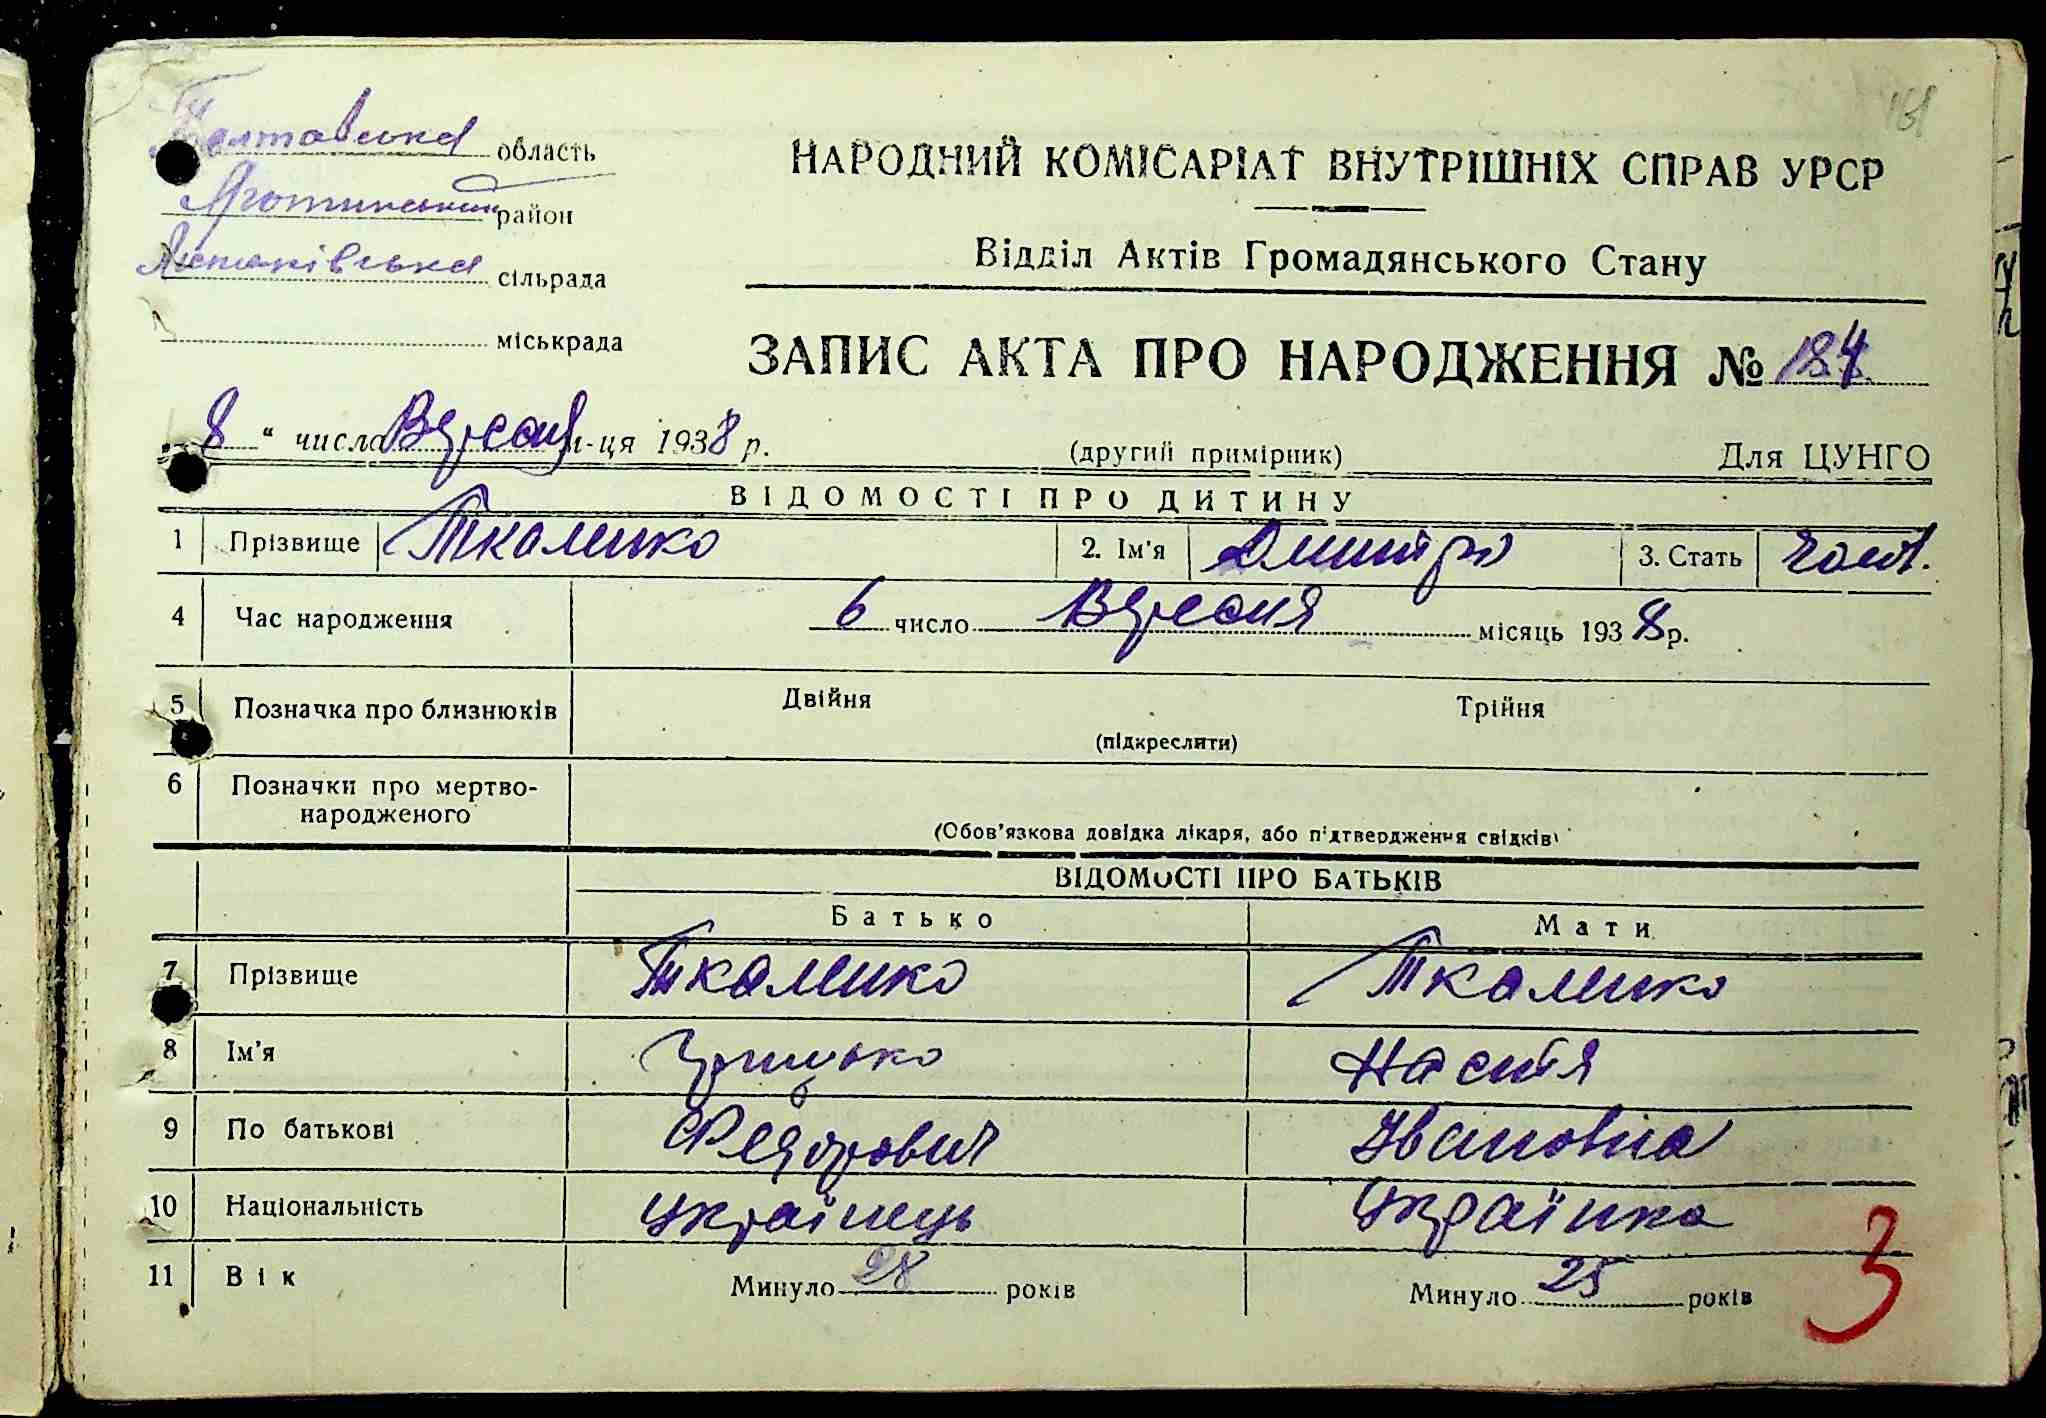 161
Полтавська область
Яготинський район
сільрада
міськрада
НАРОДНИЙ КОМІСАРІАТ ВНУТРІШНІХ СПРАВ УРСР
Відділ Актів Громадянського Стану
ЗАПИС АКТА ПРО НАРОДЖЕННЯ № 184
„ 8 “ числа Вересня м-ця 1938 р.
(другий примірник) Для ЦУНГО
ВІДОМОСТІ ПРО ДИТИНУ
1 Прізвище Ткаленко 2. Ім'я Дмитро 3. Стать чол.
4 Час народження 6 число Вересня місяць 1938 р.
5 Позначка про близнюків Двійня Трійня
(підкреслити)
6 Позначки про мертво-
народженого
(Обов'язкова довідка лікаря, або підтвердження свідків)
ВІДОМОСТІ ПРО БАТЬКІВ
Батько Мати
7 Прізвище Ткаленко Ткаленко
8 Ім'я Грицько Настя
9 По батькові Федорович Івановна
10 Національність Українець Українка
11 Вік Минуло 28 років Минуло 25 років
3